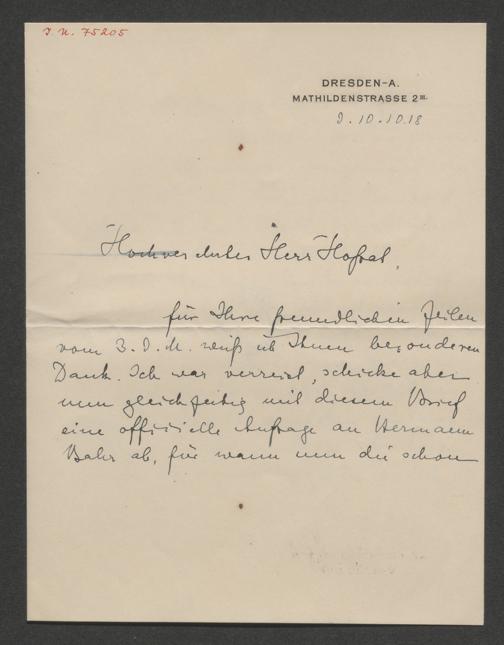 J. N. 75205
DRESDEN-A.
MATHILDENSTRASSE 2III.
9.10.1018
Hochverehrter Herr Hofrat,
für Ihre freundlichen Zeilen
vom 3. d. M. weiß ich Ihnen besonderen
Dank. Ich war verreist, schicke aber
nun gleichzeitig mit diesem Brief
eine offizielle Anfrage an Hermann
Bahr ab, für wann nun die schon